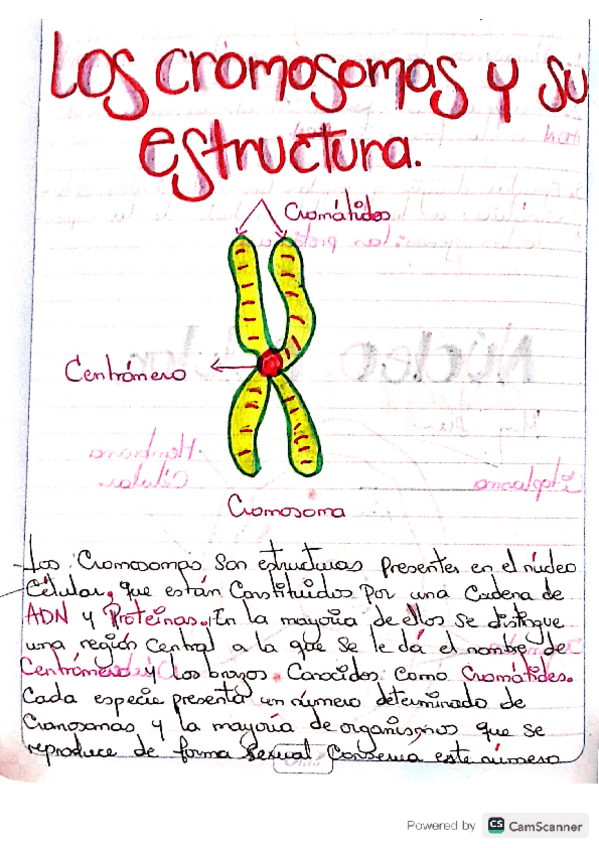 Los cromosomas y su
estructura.
Cromátides
Centrómero
Cromosoma
Los Cromosomas son estructuras presentes en el núcleo
Célular, que están Constituidos por una Cadena de
ADN y Proteínas. En la mayoría de ellos se distingue
una región Central a la que se le dá el nombre de
Centrómero y los brazos. Conocidos Como Cromátides.
Cada especie presenta un número determinado de
Cromosomas y la mayoría de organismos que se
reproduce de forma Sexual Conserva este número
Powered by CS CamScanner